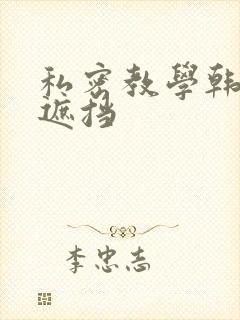 私密教學韩
遮挡
李忠志